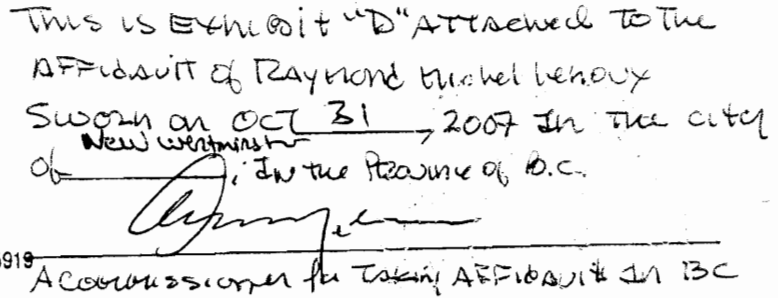 This is Exhibit "D" Attached to the
Affidavit of Raymond Michel
Sworn on Oct 31, 2007 In the city
of New Westminster, In the Province of B.C.
919
A Commissioner for Taking Affidavits In BC